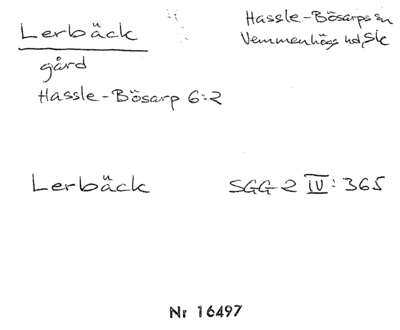 Lerbäck
Hassle-Bösarps sn
Vemmenhögs hd, Sk
gård
Hassle-Bösarp 6:2
Lerbäck
SGG 2 IV: 365
Nr 16497